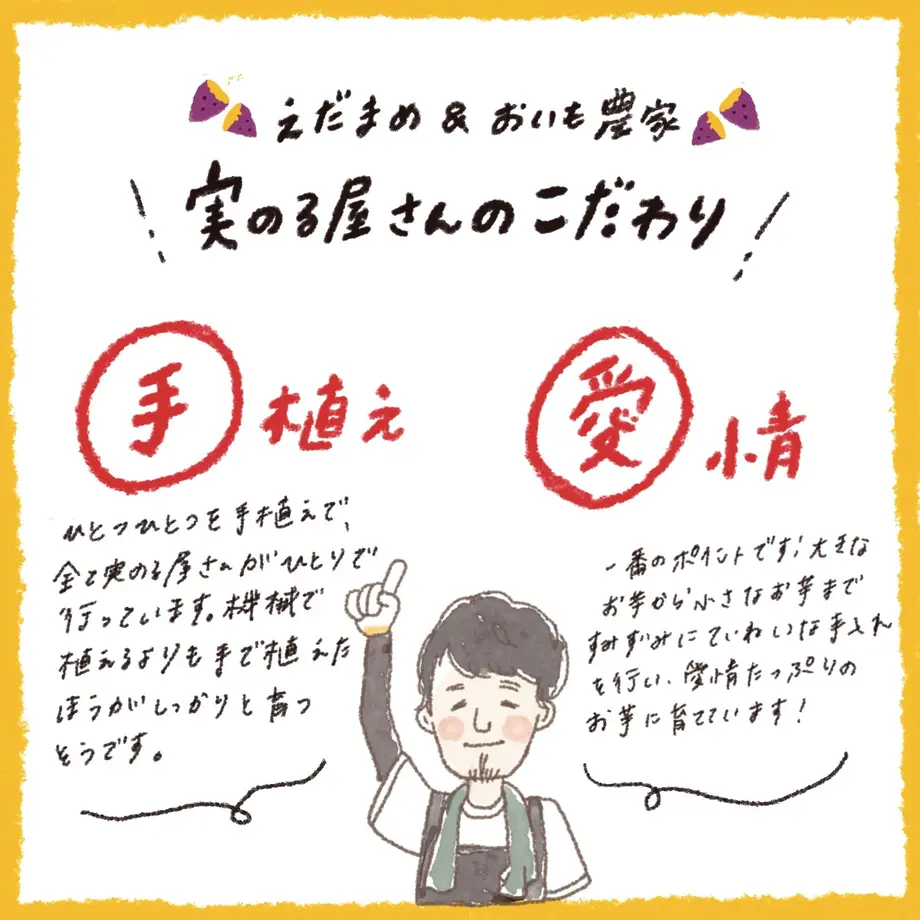 えだまめ & おいも農家
実のる屋さんのこだわり
手植え
ひとつひとつを手植えで、
全て実のる屋さんがひとりで
行っています。機械で
植えるよりも手で植えた
ほうがしっかりと育つ
そうです。
愛情
一番のポイントです!大きな
お芋から小さなお芋まで
すみずみにていねいな手入れ
を行い、愛情たっぷりの
お芋に育てています!